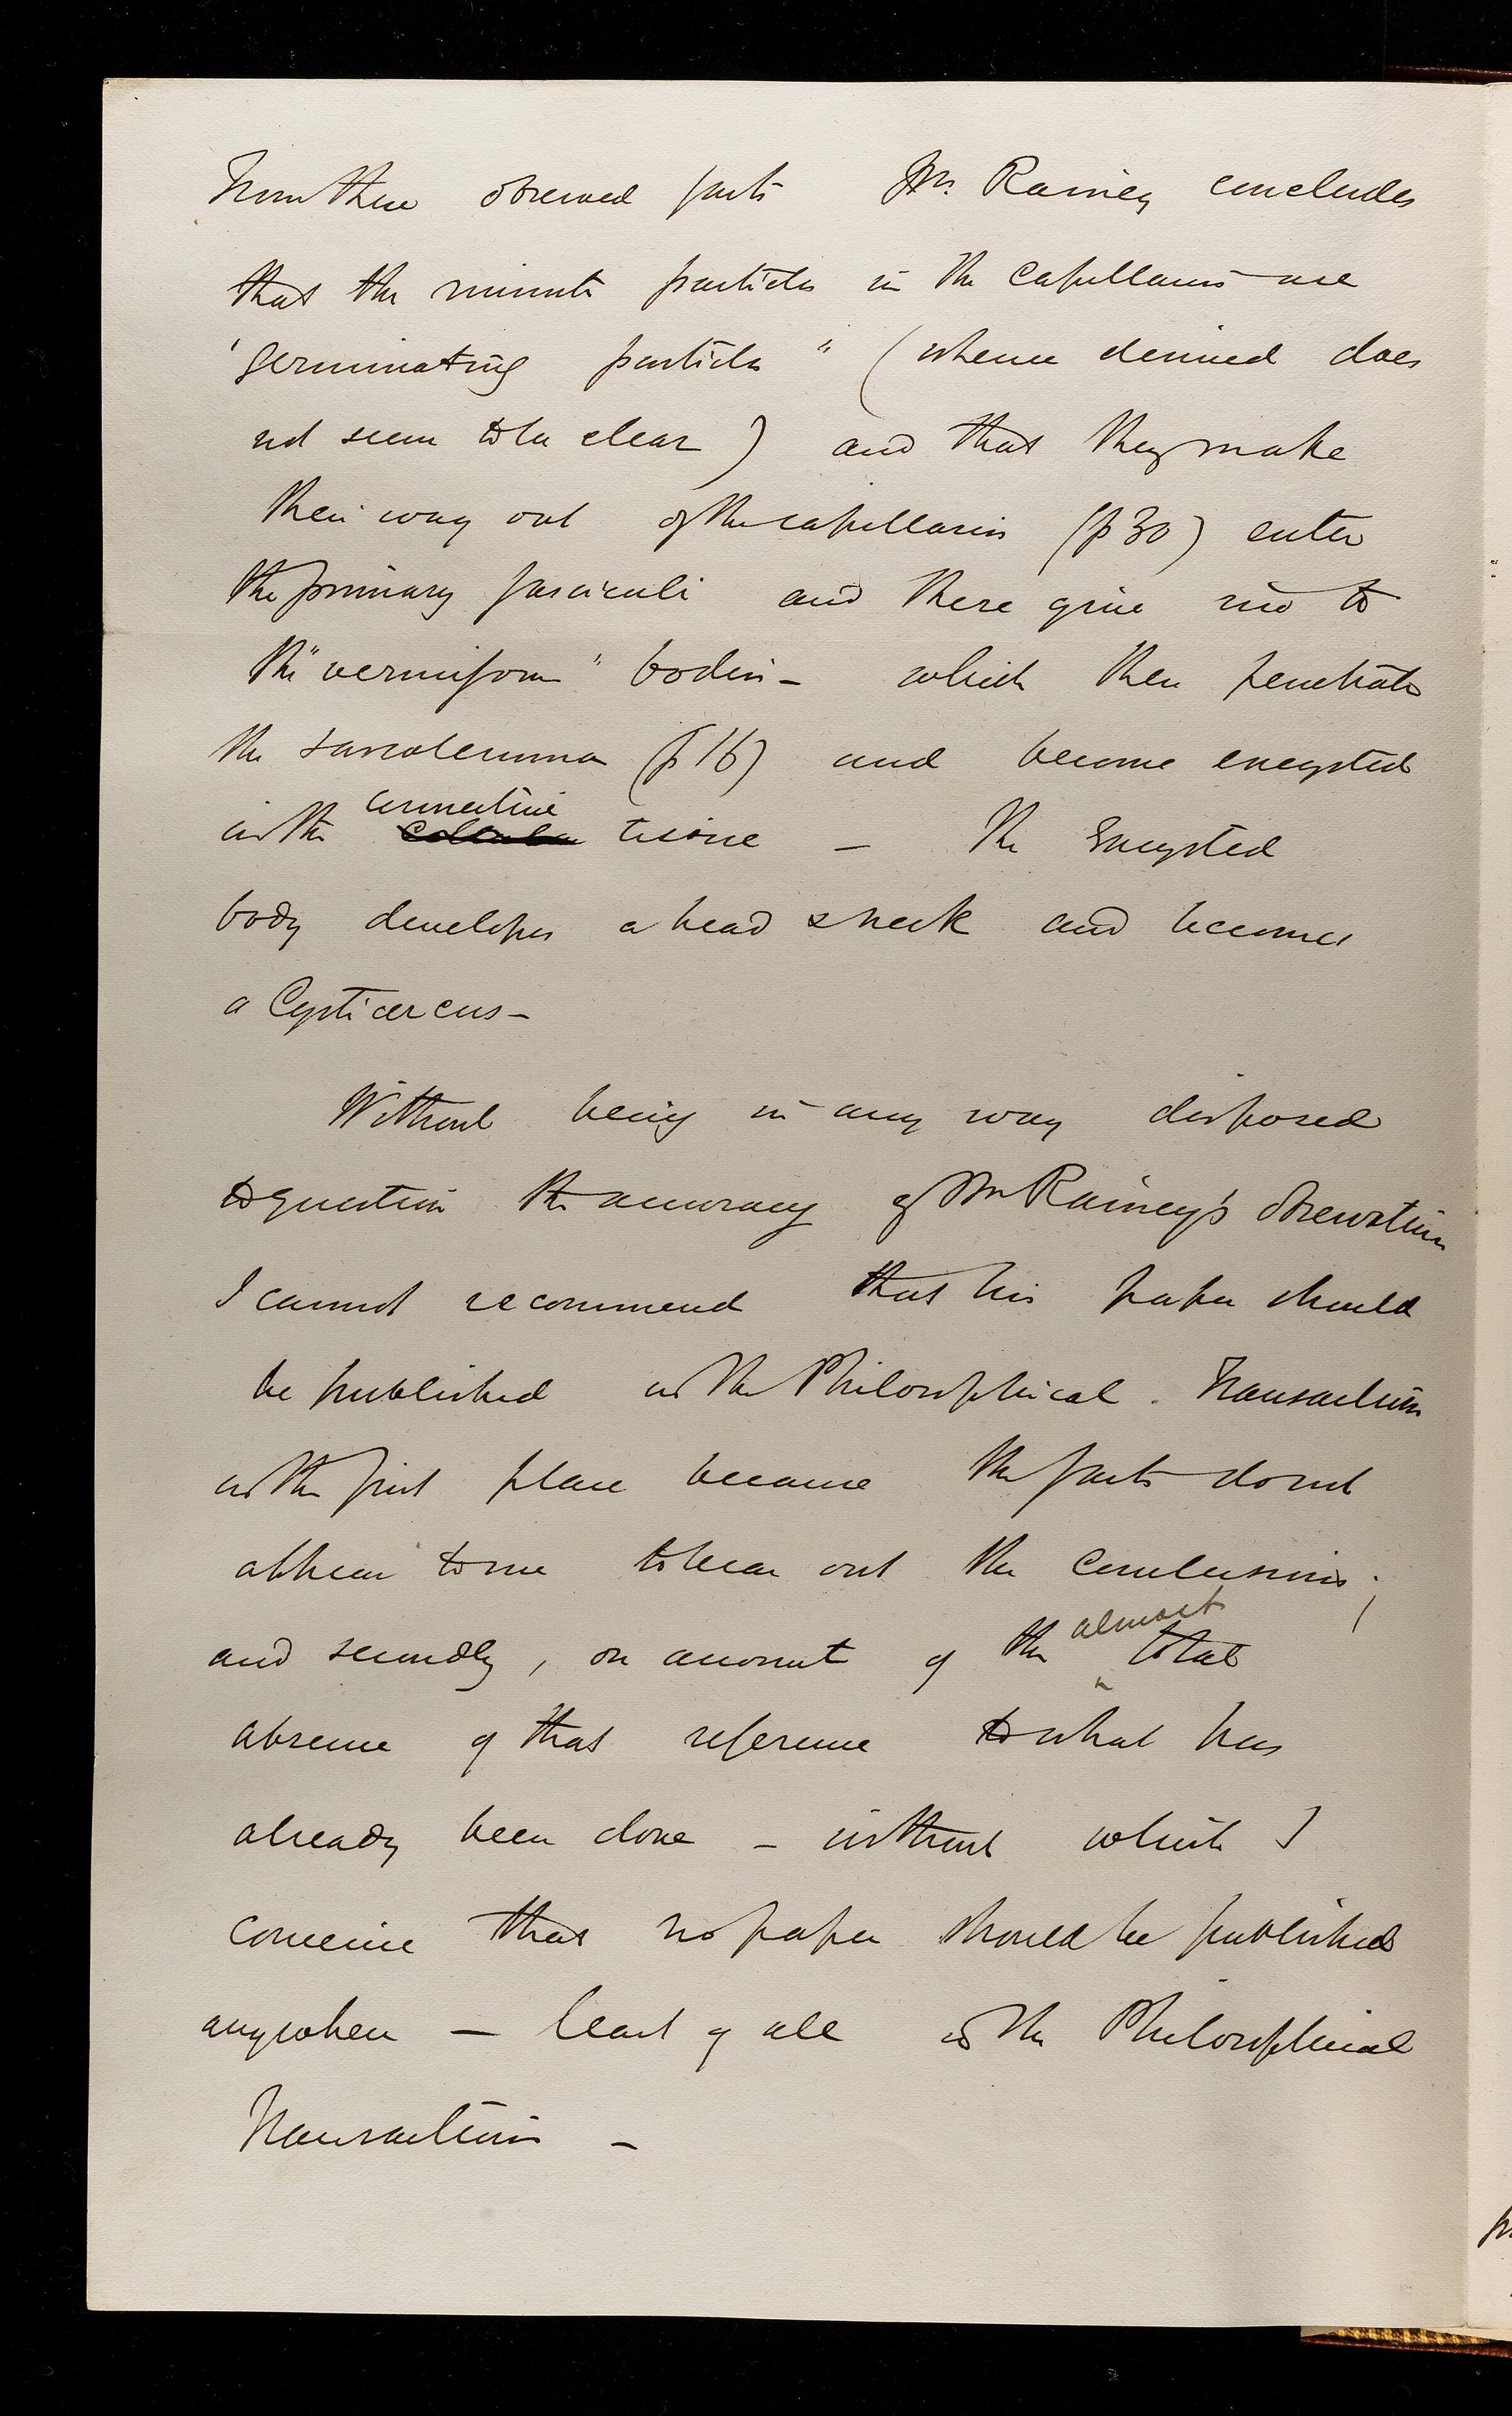 From these observed facts Mr. Rainey concludes
that the minute particles in the capillaries are
'germinating particles" (whence derived does
not seem to be clear) and that they make
their way out of the capillaries (p 30) enter
the primary fasciculi and there give rise to
the "vermiform" bodies – which then penetrate
the sarcolemma (p 16) and become encysted
connective
in the tissue – The Encysted
body developes a head & neck and becomes
a Cysticercus –
Without being in any way disposed
to question the accuracy of Mr Rainey's observations
I cannot recommend that his paper should
be published in the Philosophical Transactions
in the first place because the facts do not
appear to me to bear out the conclusions;
almost
and secondly, on account of the total
absence of that reference to what has
already been done – without which I
conceive that no paper should be published
anywhere – least of all in the Philosophical
Transactions –